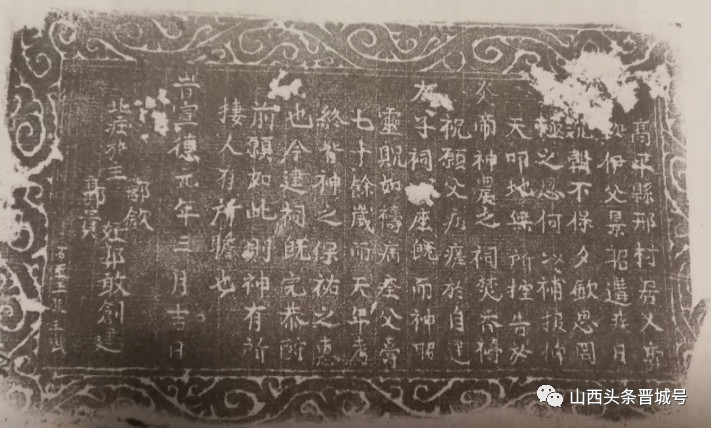 高平縣邢村居人
伊父景昭遘疾日
不保夕欽思罔
極之恩何以補報仰
天叩地無所控告於
炎帝神農之祠焚香禱
祝願父病痊於自建
太子祠座既而神昭
靈貺如禱病痊父壽
七十餘歲而天年考
終皆神之保祐之惠
也今建祠既完恭酧
前願如此則神有所
捿人有所瞻也
旹宣德元年三月吉日
郭欽
姪郭敢創建
北莊施主
郭員
石匠
山西头条晋城号